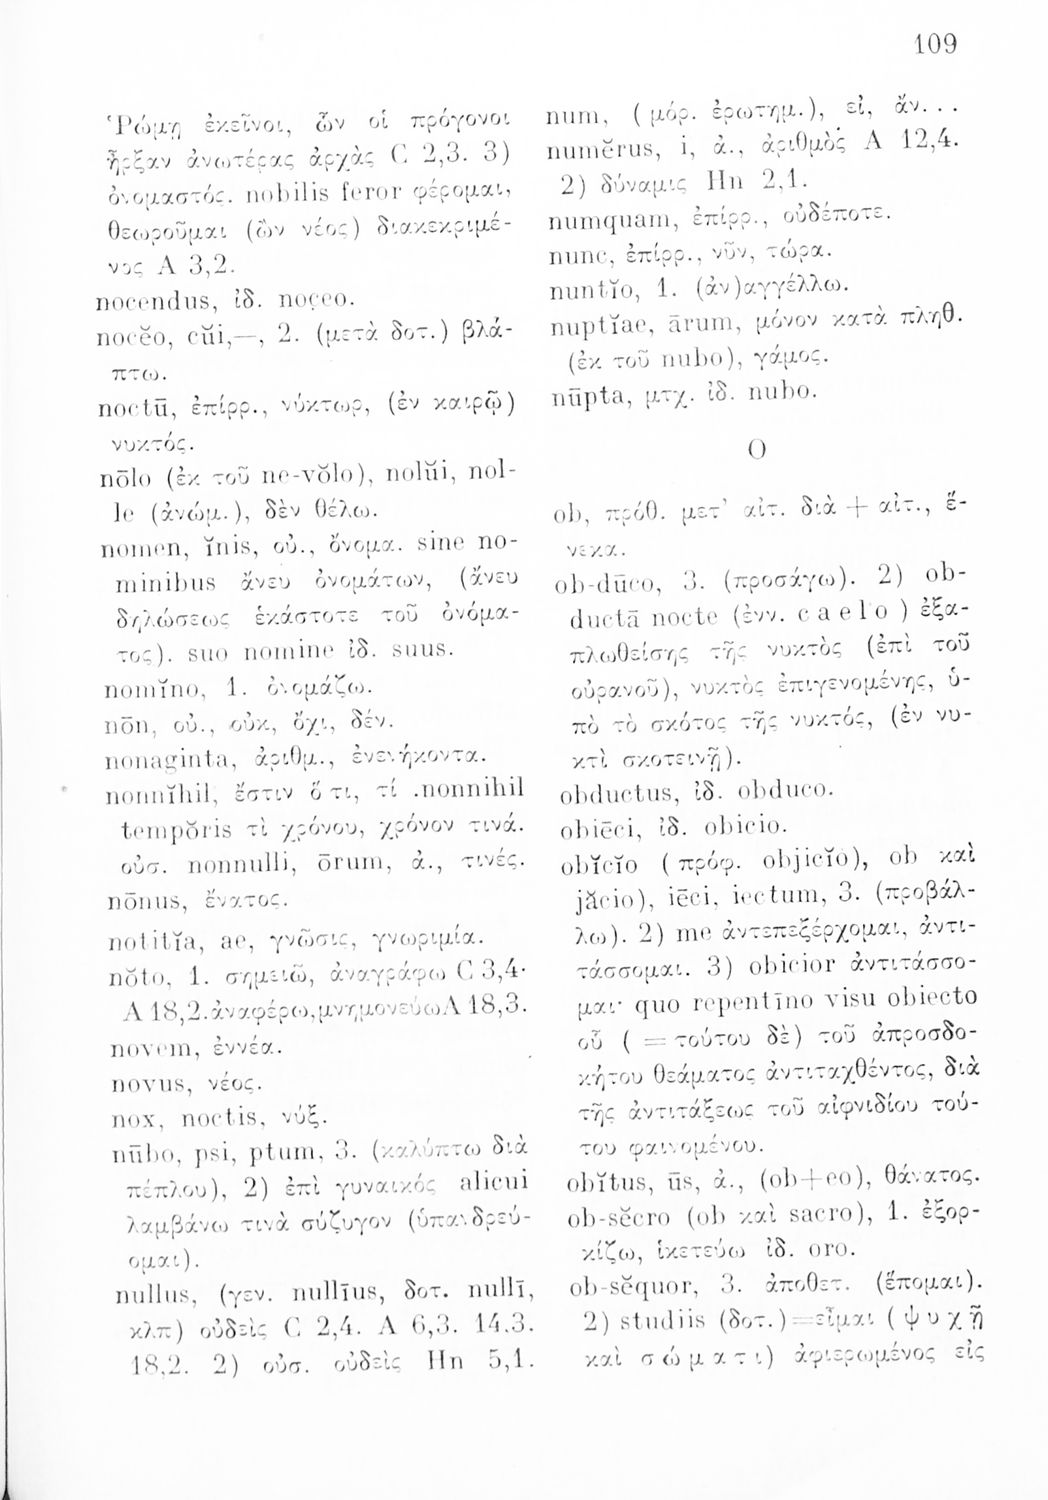 109
Ῥώμῃ ἐκεῖνοι, ὧν οἱ πρόγονοι
ἦρξαν ἀνωτέρας ἀρχὰς C 2,3. 3)
ὀνομαστός. nobilis feror φέρομαι,
θεωροῦμαι (ὢν νέος) διακεκριμέ-
νος A 3,2.
nocendus, ἰδ. noceo.
nocĕo, cŭi,—, 2. (μετὰ δοτ.) βλά-
πτω.
noctū, ἐπίρρ., νύκτωρ, (ἐν καιρῷ)
νυκτός.
nōlo (ἐκ τοῦ ne-vŏlo), nolŭi, nol-
le (ἀνώμ.), δὲν θέλω.
nomen, ĭnis, οὐ., ὄνομα. sine no-
minibus ἄνευ ὀνομάτων, (ἄνευ
δηλώσεως ἑκάστοτε τοῦ ὀνόμα-
τος). suo nomine ἰδ. suus.
nomĭno, 1. ὀνομάζω.
nōn, οὐ., οὐκ, ὄχι, δέν.
nonaginta, ἀριθμ., ἐνενήκοντα.
nonnĭhil, ἔστιν ὅ τι, τί .nonnihil
tempŏris τὶ χρόνου, χρόνον τινά.
οὐσ. nonnulli, ōrum, ἀ., τινές.
nōnus, ἔνατος.
notitĭa, ae, γνῶσις, γνωριμία.
nŏto, 1. σημειῶ, ἀναγράφω C 3,4·
A 18,2.ἀναφέρω,μνημονεύωA 18,3.
novem, ἐννέα.
novus, νέος.
nox, noctis, νύξ.
nūbo, psi, ptum, 3. (καλύπτω διὰ
πέπλου), 2) ἐπὶ γυναικός alicui
λαμβάνω τινὰ σύζυγον (ὑπανδρεύ-
ομαι).
nullus, (γεν. nullīus, δοτ. nullī,
κλπ) οὐδεὶς C 2,4. A 6,3. 14.3.
18,2. 2) οὐσ. οὐδεὶς Hn 5,1.
num, ( μόρ. ἐρωτημ.), εἰ, ἄν. . .
numĕrus, i, ἀ., ἀριθμὸς A 12,4.
2) δύναμις Hn 2,1.
numquam, ἐπίρρ., οὐδέποτε.
nunc, ἐπίρρ., νῦν, τώρα.
nuntĭo, 1. (ἀν)αγγέλλω.
nuptĭae, ārum, μόνον κατὰ πληθ.
(ἐκ τοῦ nubo), γάμος.
nūpta, μτχ. ἰδ. nubo.
O
ob, πρόθ. μετ᾽ αἰτ. διὰ + αἰτ., ἕ-
νεκα.
ob-dūco, 3. (προσάγω). 2) ob-
ductā nocte (ἐνν. caelo ) ἐξα-
πλωθείσης τῆς νυκτὸς (ἐπὶ τοῦ
οὐρανοῦ), νυκτὸς ἐπιγενομένης, ὑ-
πὸ τὸ σκότος τῆς νυκτός, (ἐν νυ-
κτὶ σκοτεινῇ).
obductus, ἰδ. obduco.
obiēci, ἰδ. obicio.
obĭcĭo ( πρόφ. objicĭo), ob καὶ
jăcio), iēci, iectum, 3. (προβάλ-
λω). 2) me ἀντεπεξέρχομαι, ἀντι-
τάσσομαι. 3) obicior ἀντιτάσσο-
μαι· quo repentīno visu obiecto
οὗ ( = τούτου δὲ) τοῦ ἀπροσδο-
κήτου θεάματος ἀντιταχθέντος, διὰ
τῆς ἀντιτάξεως τοῦ αἰφνιδίου τού-
του φαινομένου.
obĭtus, ūs, ἀ., (ob+eo), θάνατος.
ob-sĕcro (ob καὶ sacro), 1. ἐξορ-
κίζω, ἱκετεύω ἰδ. oro.
ob-sĕquor, 3. ἀποθετ. (ἕπομαι).
2) studiis (δοτ.)=εἶμαι ( ψυχῇ
καὶ σώματι) ἀφιερωμένος εἰς